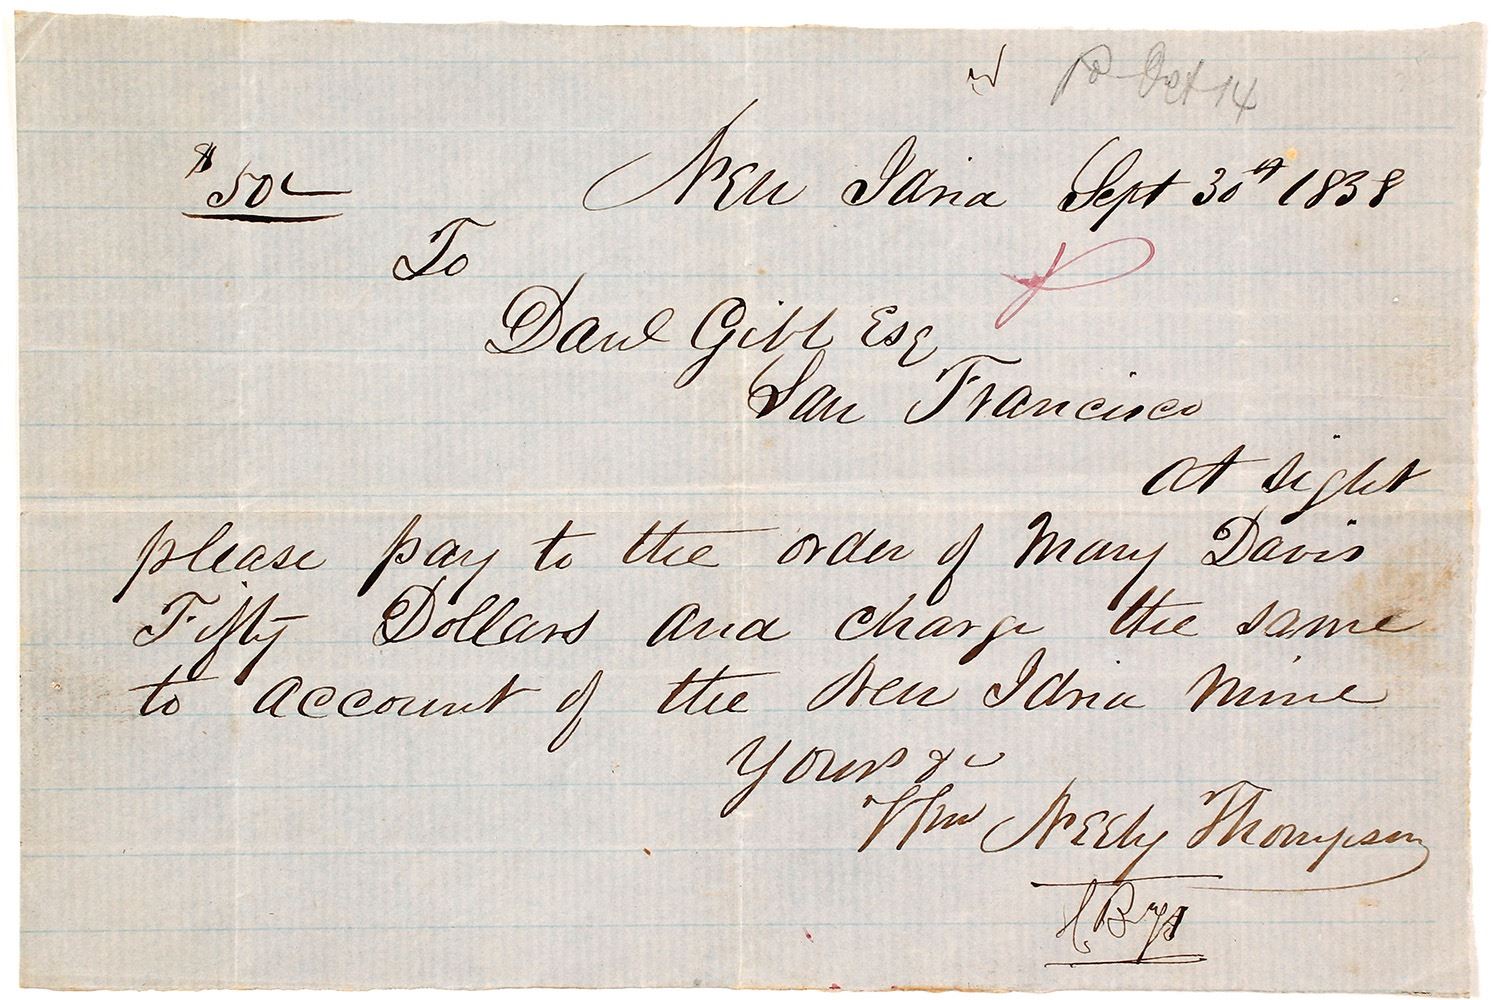 pd Oct 14
$50
New Idria Sept 30th 1858
To
Danl Gibb Esq
San Francisco
At sight
please pay to the order of Mary Davis
Fifty Dollars and charge the same
to account of the New Idria Mine
Yours &c
Wm Neely Thompson